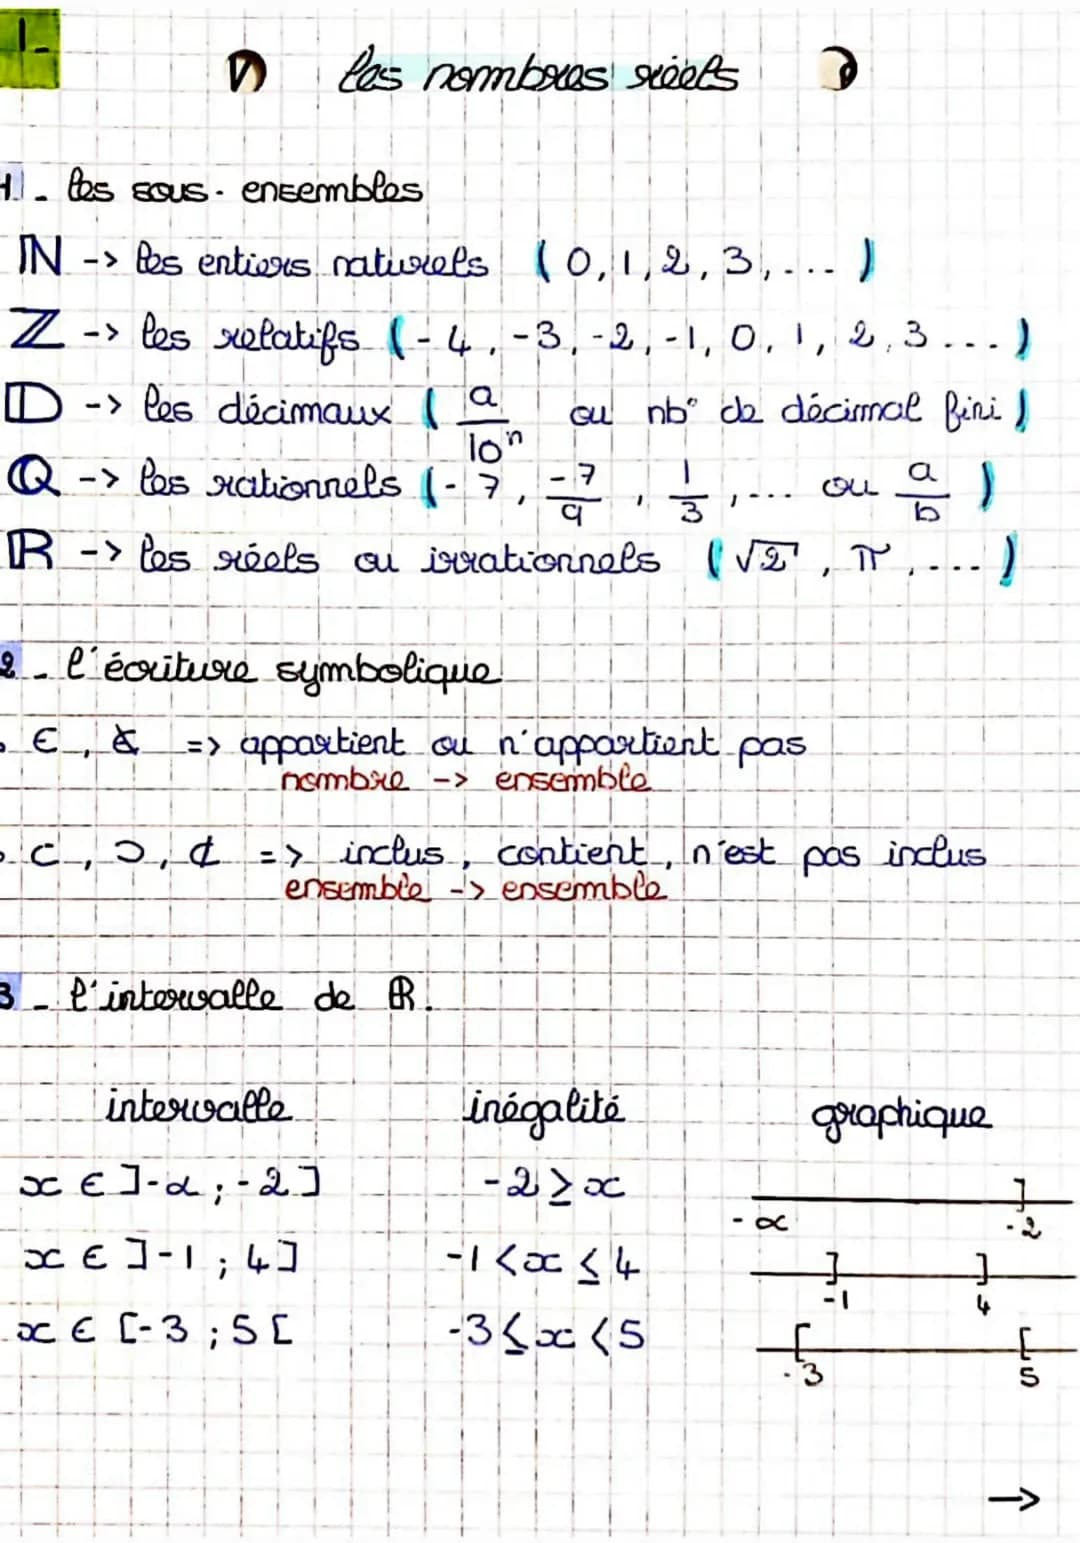 1-
les nombres réels
1 - les sous-ensembles
ℕ -> les entiers naturels (0,1,2,3,...)
ℤ -> les relatifs (-4,-3,-2,-1,0,1,2,3...)
𝔻 -> les décimaux (a/10ⁿ ou nb° de décimal fini)
ℚ -> les rationnels (-7, -7/9, 1/3,... ou a/b)
ℝ -> les réels ou irrationnels (√2, π,...)
2 - l'écriture symbolique
∈, ∉ => appartient ou n'appartient pas
nombre -> ensemble
⊂, ⊃, ⊄ => inclus, contient, n'est pas inclus
ensemble -> ensemble
3 - l'intervalle de ℝ.
intervalle inégalité graphique
x ∈ ]-∝ ; -2] -2 ≥ x -∝ ] -2
x ∈ ]-1 ; 4] -1 < x ≤ 4 ] -1 ] 4
x ∈ [-3 ; 5[ -3 ≤ x < 5 [ -3 [ 5
->